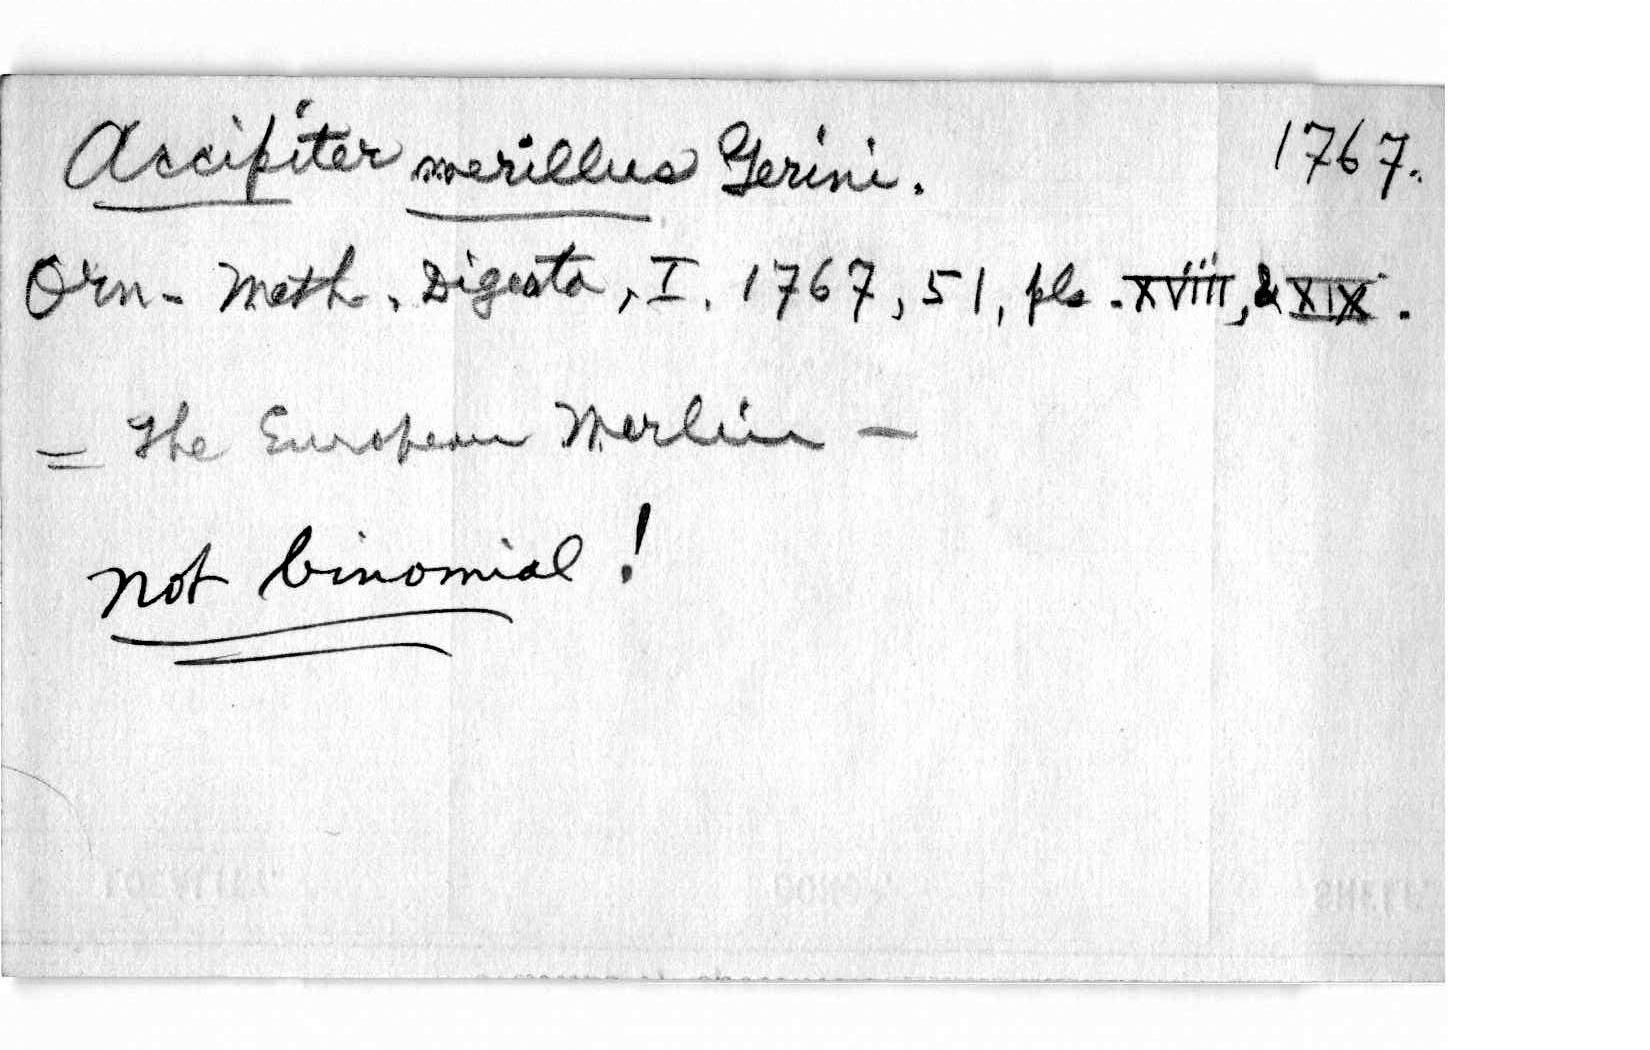 Accipiter merillus Gerini. 1767.
Orn. Meth. Digesta, I. 1767, 51, pls. XVIII, & XIX.
= The European Merlin —
not binomial!